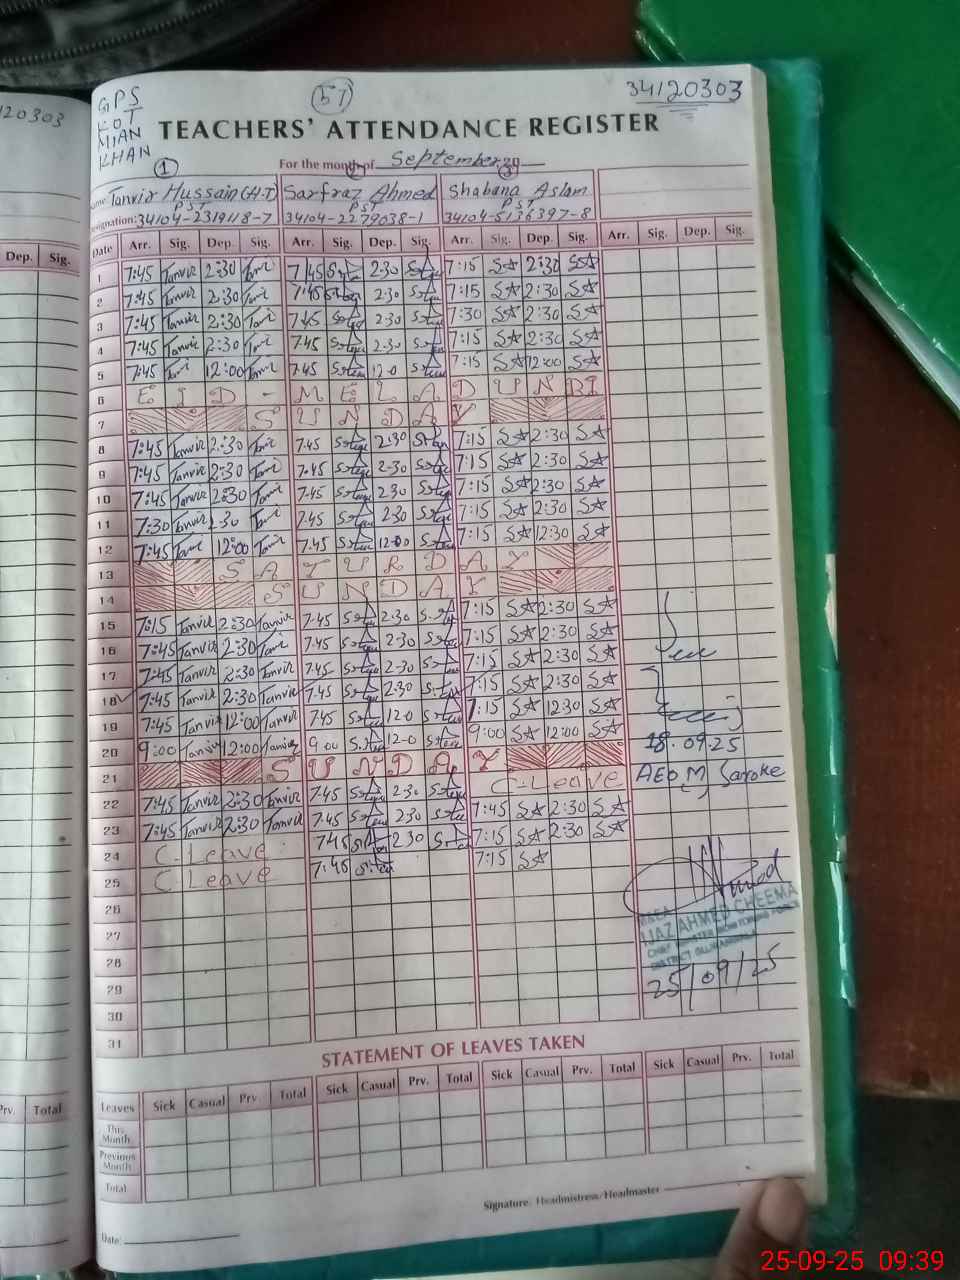 120303
GPS
KOT
MIAN
KHAN
57
34120303
TEACHERS' ATTENDANCE REGISTER
For the month of September 20
1 2 3
Name: Tanvir Hussain (H.T) Sarfraz Ahmed Shabana Aslam
PST PST PST
Designation: 34104-2319118-7 34104-2279038-1 34104-5136397-8
Dep. Sig.
Date Arr. Sig. Dep. Sig. Arr. Sig. Dep. Sig. Arr. Sig. Dep. Sig. Arr. Sig. Dep. Sig.
1 7:45 Tanvir 2:30 7:45 2:30 7:15 SA 2:30 SA
2 7:45 Tanvir 2:30 7:45 2:30 7:15 SA 2:30 SA
3 7:45 Tanvir 2:30 7:45 2:30 7:30 SA 2:30 SA
4 7:45 Tanvir 2:30 7:45 2:30 7:15 SA 2:30 SA
5 7:45 12:00 7:45 12-0 7:15 SA 12:00 SA
6 EID - MELAD UN BI
7 SUNDAY
8 7:45 Tanvir 2:30 7:45 2:30 7:15 SA 2:30 SA
9 7:45 Tanvir 2:30 7:45 2-30 7:15 SA 2:30 SA
10 7:45 Tanvir 2:30 7:45 2:30 7:15 SA 2:30 SA
11 7:30 Tanvir 2:30 7:45 2:30 7:15 SA 2:30 SA
12 7:45 12:00 7:45 12-00 7:15 SA 12:30 SA
13 SATURDAY
14 SUNDAY
15 7:15 Tanvir 2:30 Tanvir 7:45 2:30 7:15 SA 2:30 SA
16 7:45 Tanvir 2:30 Tanvir 7:45 2:30 7:15 SA 2:30 SA
17 7:45 Tanvir 2:30 Tanvir 7:45 2-30 7:15 SA 2:30 SA
18 7:45 Tanvir 2:30 Tanvir 7:45 2:30 7:15 SA 2:30 SA
19 7:45 Tanvir 12:00 Tanvir 7:45 12-0 7:15 SA 12:30 SA
20 9:00 Tanvir 12:00 Tanvir 9:00 12-0 9:00 SA 12:00 SA 18.09.25
21 SUNDAY AEO M Saroke
22 7:45 Tanvir 2:30 Tanvir 7:45 2:30 C-Leave
23 7:45 Tanvir 2:30 Tanvir 7:45 2:30 7:45 SA 2:30 SA
24 C-Leave 7:45 2:30 7:15 SA 2:30 SA
25 C Leave 7:45 7:15 SA
26
27
28
29
30
31
IJAZ AHMED CHEEMA
CHIEF MINISTER MONITORING FORCE
DISTRICT GUJRANWALA
25/09/25
STATEMENT OF LEAVES TAKEN
Prv. Total
Leaves Sick Casual Prv Total Sick Casual Prv. Total Sick Casual Prv. Total Sick Casual Prv. Total
This Month
Previous Month
Total
Signature: Headmistress/Headmaster
Date:
25-09-25 09:39